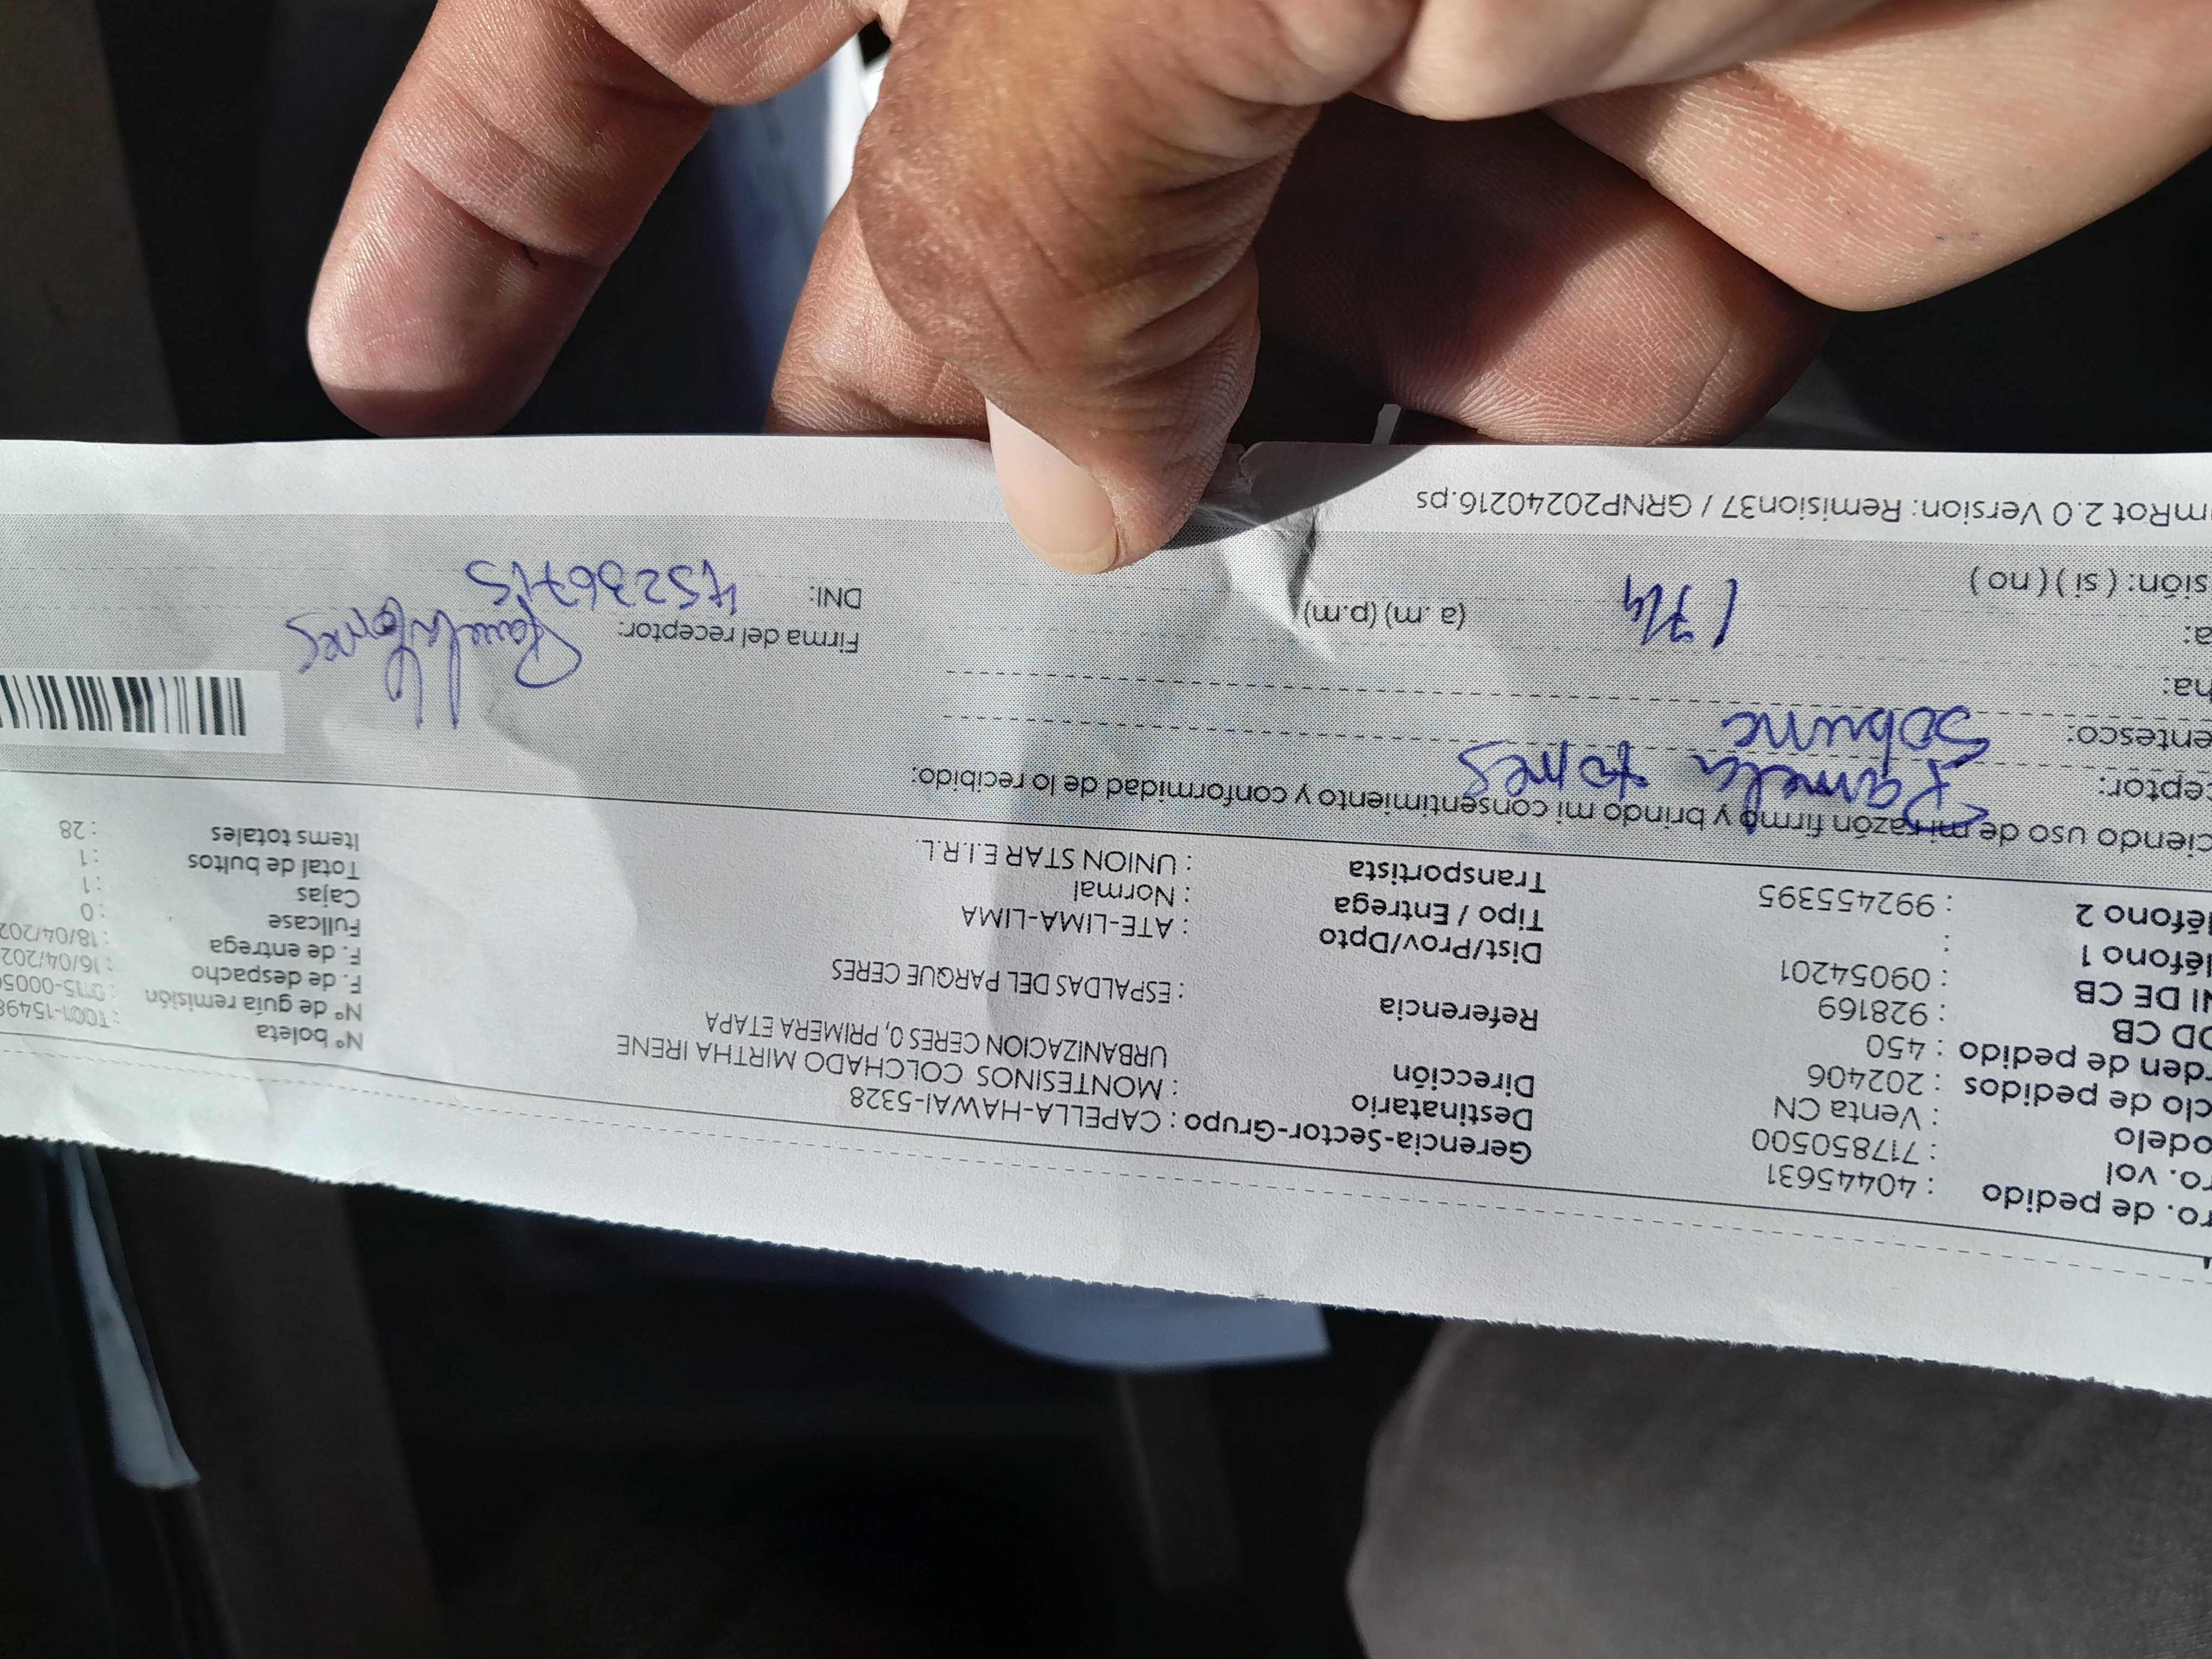 ro. de pedido : 40445631
ro. vol : 717850500
odelo : Venta CN
clo de pedidos : 202406
rden de pedido : 450
OD CB : 928169
NI DE CB : 09054201
léfono 1 :
léfono 2 : 992455395
Gerencia-Sector-Grupo : CAPELLA-HAWAI-5328
Destinatario : MONTESINOS COLCHADO MIRTHA IRENE
Dirección URBANIZACION CERES 0, PRIMERA ETAPA
Referencia : ESPALDAS DEL PARQUE CERES
Dist/Prov/Dpto : ATE-LIMA-LIMA
Tipo / Entrega : Normal
Transportista : UNION STAR E.I.R.L.
Nº boleta : T001-15498
Nº de guía remisión : 0115-00050
F. de despacho : 16/04/202
F. de entrega : 18/04/202
Fullcase : 0
Cajas : 1
Total de bultos : 1
Items totales : 28
ciendo uso de mi razón firmo y brindo mi consentimiento y conformidad de lo recibido:
ceptor: Pamela torres
entesco: Sobrina
ha: 17/4
a: (a. m) (p.m)
sión: ( si ) ( no )
Firma del receptor: Pamela Torres
DNI: 75236715
mRot 2.0 Version: Remision37 / GRNP20240216.ps